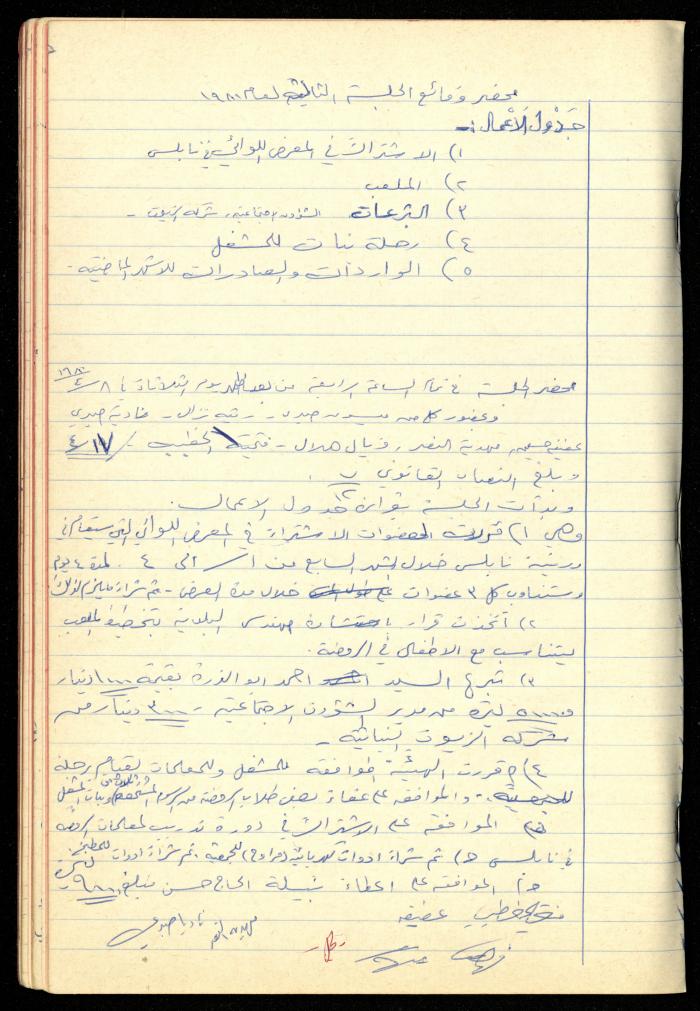 محضر وقائع الجلسة الثالثة لعام ١٩٨١
جَدْوَل الأَعْمال :-
١) الاشتراك في المعرض اللوائي في نابلس
٢) الملعب
٣) التبرعات الشؤون الاجتماعية، شركة الزيوت -
٤) رحلة بنات للمشغل
٥) الواردات والصادرات للأشهر الماضية -
محضر الجلسة في تمام الساعة الرابعة من بعد ظهر يوم الثلاثاء ٨/٤
وحضور كل من ميسون صبري - رتيبة نزال - نادية صبري
عفيفة حسين، مهدية النصر، فريال هلال - فتحية الخطيب - ١٧/٤
وبلغ النصاب القانوني
وبدأت الجلسة بقراءة جدول الاعمال.
وهي ١) قررت العضوات الاشتراك في المعرض اللوائي التي سيقام في
مدينة نابلس خلال الشهر السابع من ١ الى ٤ . لمدة ٤ يوم
وستناوب كل ٣ عضوات خلال مدة العرض - تم شراء مايلزم لذلك
٢) أتخذت قرار باستشارة مهندس البلدية بتخطيط الملعب
ليتناسب مع الاطفال في الروضة.
٣) تبرع السيد احمد ابو الذرة بقيمة ١٠٠ دينار
و ٥٠٠٠ ليرة من مدير الشؤون الاجتماعية - ٣٠٠ دينار من
شركة الزيوت النباتية -
٤) قررت الهيئة الموافقة للمشغل وللمعلمات لقيام برحلة
- والموافقة على اعفاء نصف طلاب الروضة من الرسم وبنات المشغل
الموافقة على الاشتراك في دورة تدريب لمعلمات الروضة
في نابلس تم شراء ادوات كهربائية (مراوح) للجمعية، تم شراء ادوات للمطبخ.
الموافقة على اعطاء نبيلة الحاج حسن مبلغ
فتحية الخطيب عفيفة
مهدية النصر ناديا صبري